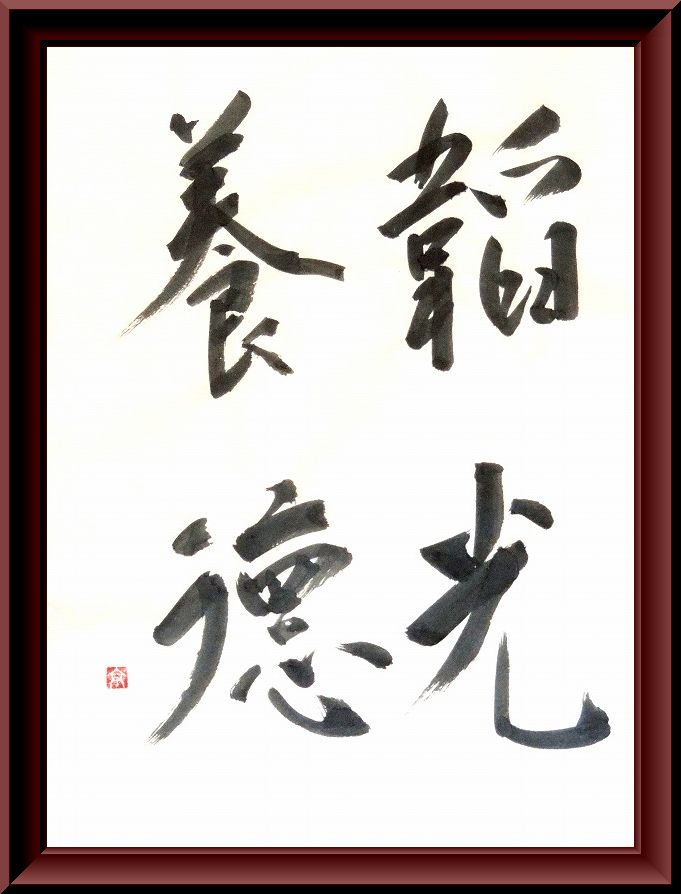 韜光
養德